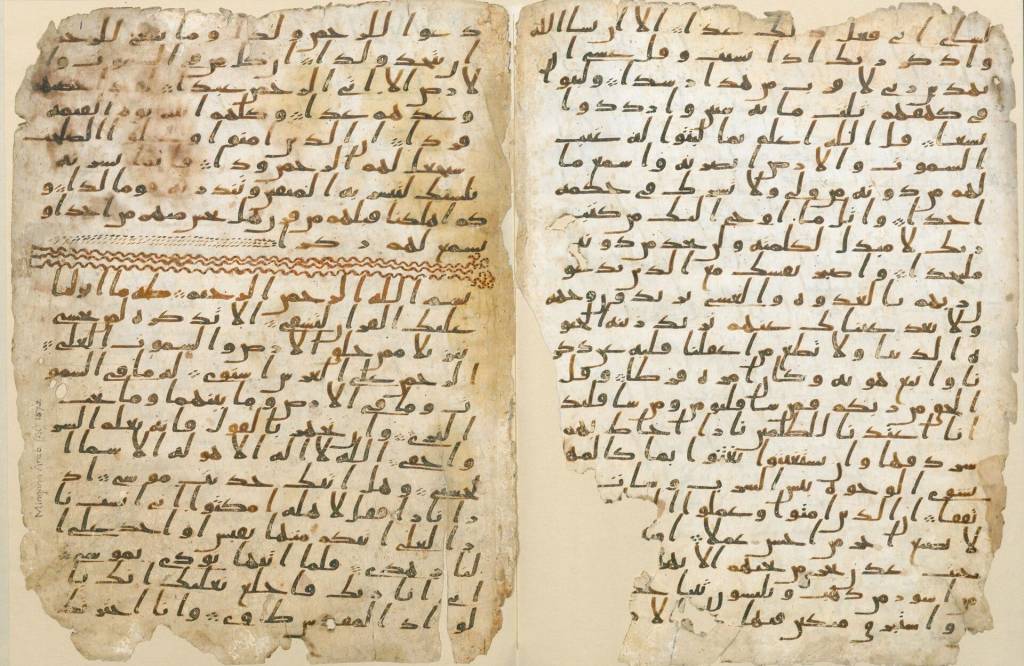 لشاى انى فعل ذلك غدا الا ان يشا الله
واذكر ربك اذا نسيت وقل عسى ان
يهدين ربى لاقرب من هذا رشدا ولبثوا
فى كهفهم ثلث مائة سنين وازددوا
تسعا قل الله اعلم بما لبثوا له غيب
السموت والارض ابصر به واسمع ما
لهم من دونه من ولى ولا يشرك فى حكمه
احدا واتل ما اوحى اليك من كتب
ربك لا مبدل لكلمته ولن تجد من دونه
ملتحدا واصبر نفسك مع الذين يدعو
ن ربهم بالغدوة والعشى يريدون وجهه
ولا تعد عيناك عنهم تريد زينة الحيو
ة الدنيا ولا تطع من اغفلنا قلبه عن ذكر
نا واتبع هويه وكان امره فرطا وقل
الحق من ربكم فمن شا فليومن ومن شا فليك
انا اعتدنا للظلمين نارا احاط بهم
سردقها وان يستغيثوا يغثوا بما كالمه
يشوى الوجوه بئس الشرب وسات
تفقا ان الذين امنوا وعملوا ا
لا نضيع اجر من احسن عملا او
جنت عدن تجرى من تحتهم الانها
من اسور من ذهب ويلبسون ثيابا خ
واستبرق متكين فيها الار
دعوا للرحمن ولدا وما ينبغى للرحمن
ان يتخذ ولدا ان كل من فى السموت وا
لارض الا اتى الرحمن عبدا لقد احصيهم
وعدهم عدا وكلهم اتيه يوم القيمة
فردا ان الذين امنوا وعملوا الصلحت
سيجعل لهم الرحمن ودا فانما يسرنه
بلسنك لتبشر به المتقين وتنذر به قوما لدا و
كم اهلكنا قبلهم من قرن هل تحس منهم من احد او
تسمع لهم ركزا
بسم الله الرحمن الرحيم طه ما انزلنا
عليك القران لتشقى الا تذكرة لمن يخشى
تنزيلا ممن خلق الارض والسموت العلى
الرحمن على العرش استوى له ما فى السمو
ت وما فى الارض وما بينهما وما تحت
الثرى وان تجهر بالقول فانه يعلم السر
واخفى الله لا اله الا هو له الاسما ا
لحسنى وهل اتيك حديث موسى اذ
را نارا فقل لاهله امكثوا انى انست نا
را لعلى اتيكم منها بقبس او اجد على ا
لنار هدى فلما اتيها نودى يموسى
انى انا ربك فاخلع نعليك انك با
لواد المقدس طوى وانا اخترتك